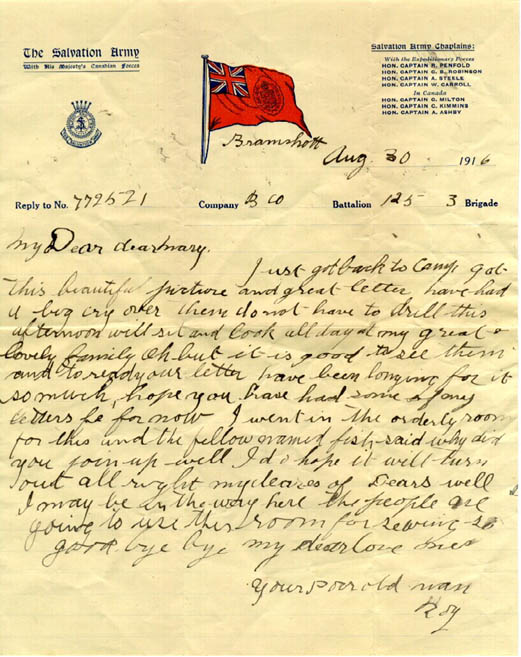 The Salvation Army
With His Majesty's Canadian Forces
Salvation Army Chaplains:
With the Expeditionary Forces
HON. CAPTAIN R. PENFOLD
HON. CAPTAIN C. S. ROBINSON
HON. CAPTAIN A. STEELE
HON. CAPTAIN W. CARROLL
In Canada
HON. CAPTAIN C. MILTON
HON. CAPTAIN C. KIMMINS
HON. CAPTAIN A. ASHBY
Bramshott
Aug. 30 1916
Reply to No. 772521 Company B Co Battalion 125 3 Brigade
My Dear dear Mary.
Just got back to Camp got
this beautiful picture and great letter have had
a big cry over them do not have to drill this
afternoon will sit and look all day at my great &
lovely family Oh but it is good to see them
and to read your letter have been longing for it
so much, hope you have had some of my
letters be for now I went in the orderly room
for this and the fellow named said why did
you join up well I do hope it will turn
out all right my of Dears well
I may be in the way here the people are
going to use this room for sewing so
good bye bye my dear love
Your poor old man
Roy